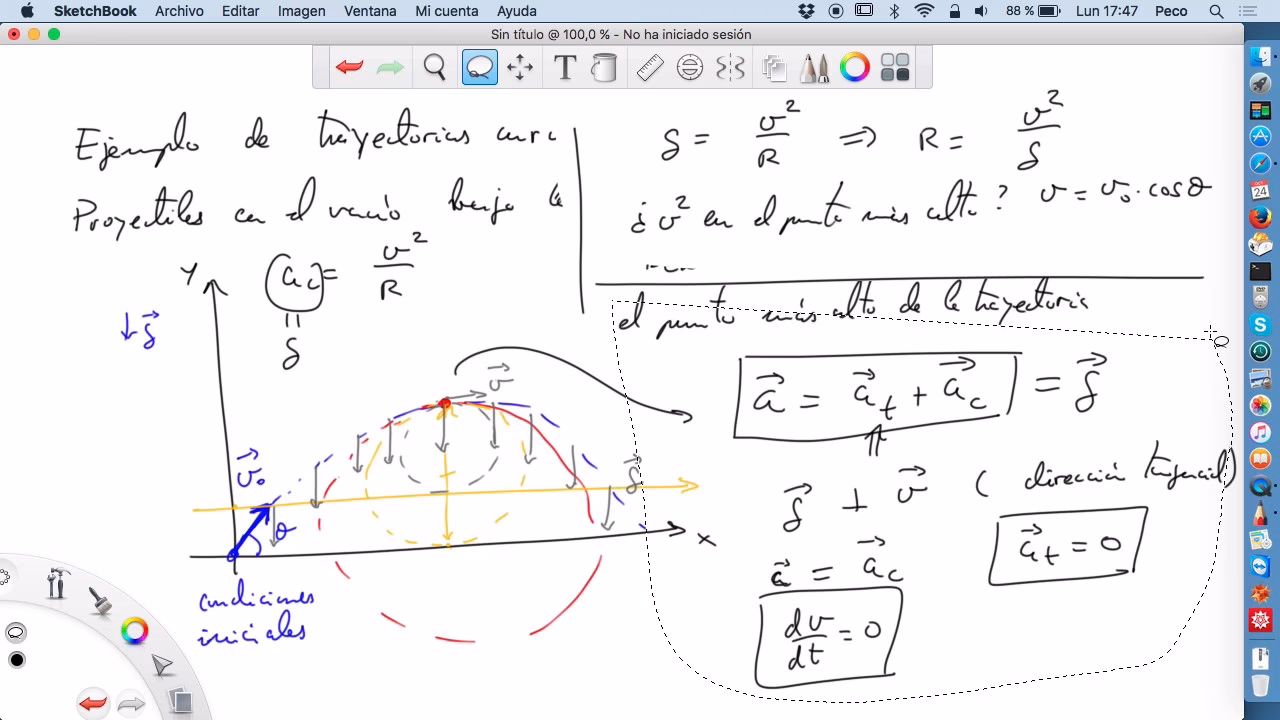 SketchBook Archivo Editar Imagen Ventana Mi cuenta Ayuda 88 % Lun 17:47 Peco
Sin título @ 100,0 % - No ha iniciado sesión
Ejemplo de trayectorias curv
Proyectiles en el vacío bajo la
a_c = v²/R
=
g
Y
↓g⃗
v⃗₀
θ
v⃗
g⃗
x
condiciones
iniciales
g = v²/R ⇒ R = v²/g
¿v² en el punto más alto? v = v₀·cosθ
el punto más alto de la trayectoria
a⃗ = a⃗_t + a⃗_c = g⃗
⇑
g⃗ ⊥ v⃗ (dirección tangencial)
a⃗ = a⃗_c
a⃗_t = 0
dv/dt = 0
OCT
24